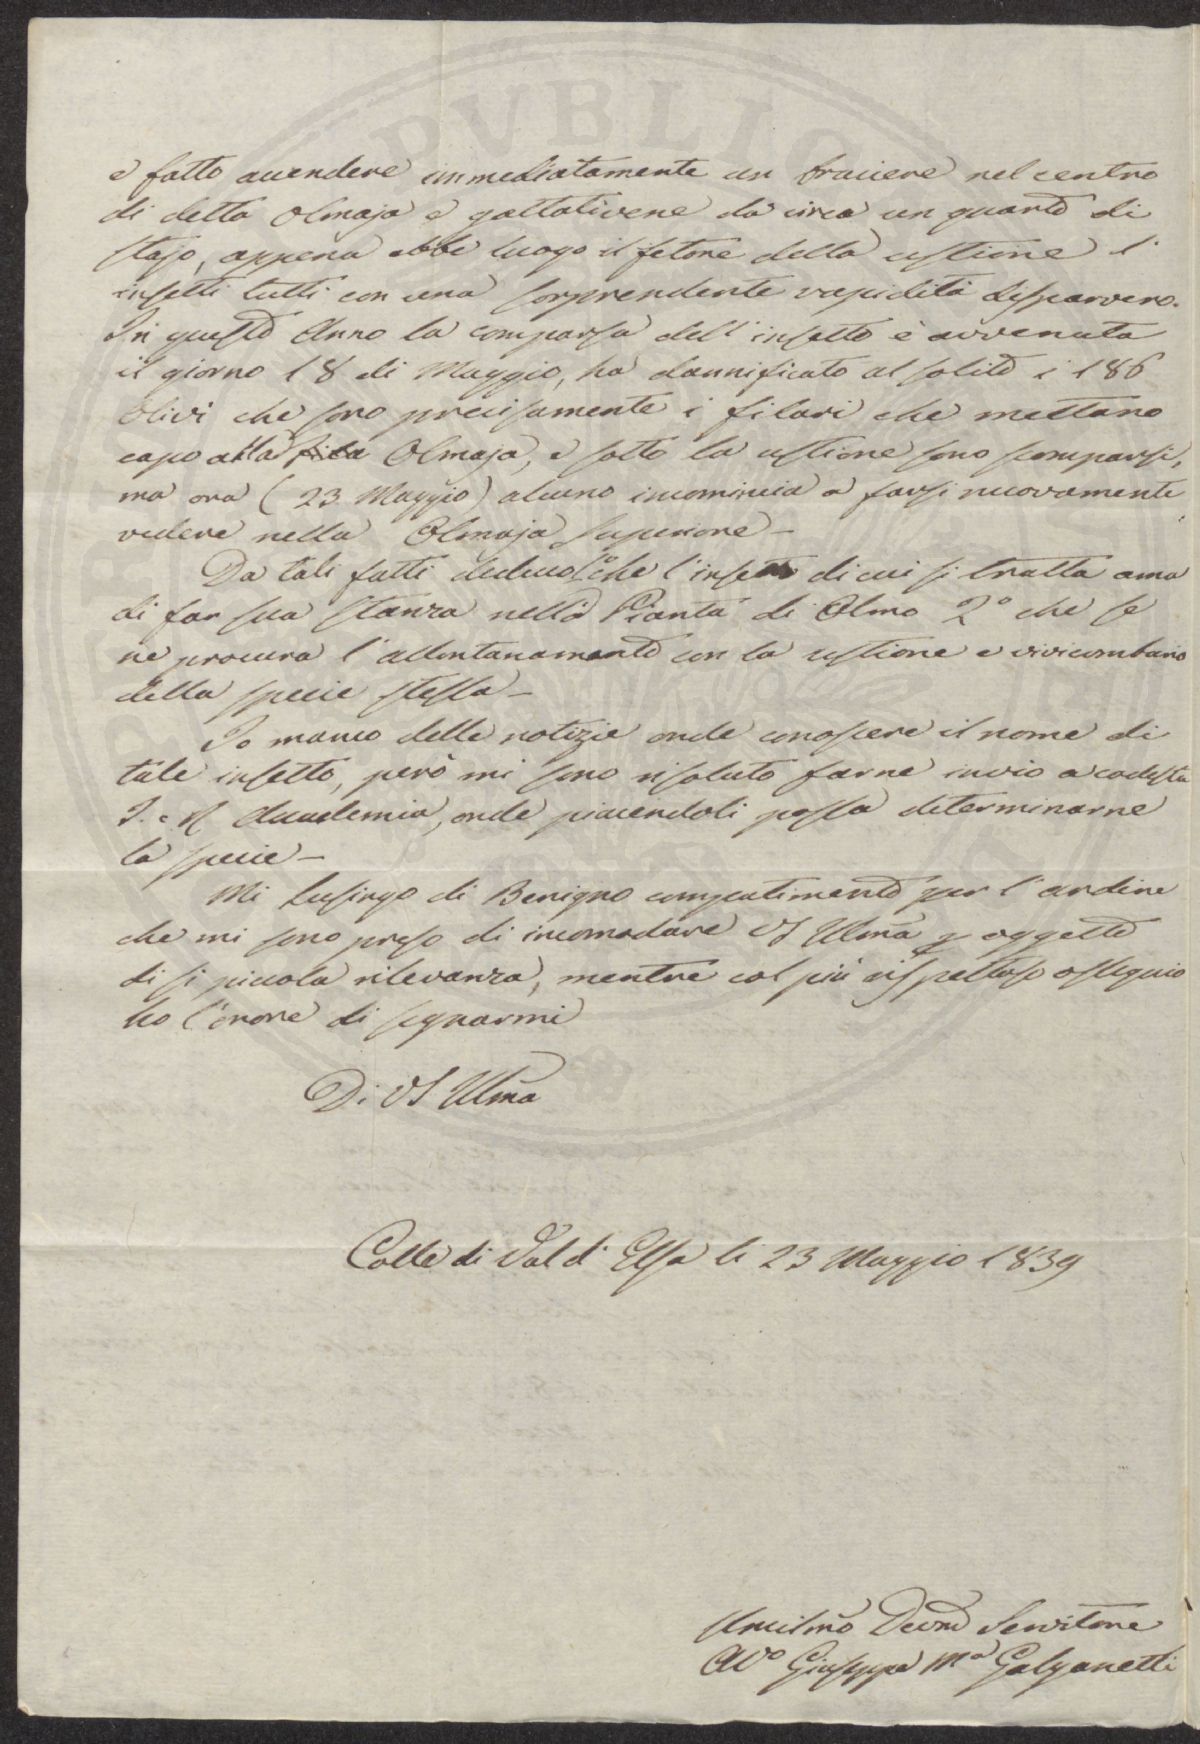 PVBLIC
e fatto accendere immediatamente un braciere nel centro
di detta Olmaja e gettativene da circa un quarto di
stajo, appena ebbe luogo il fetore della ustione l'
insetti tutti con una sorprendente rapidità disparvero.
In questo Anno la comparsa dell'insetto è avvenuta
il giorno 18 di Maggio, ha dannificato al solito i 186
Olivi che sono precisamente i filari che mettano
capo alla Olmaja, e sotto la ustione sono scomparsi,
ma ora (23 Maggio) alcuno incomincia a farsi nuovamente
vedere nella Olmaja superiore –
Da tali fatti deduco 1° che l'insetto di cui si tratta ama
di far sua stanza nella Pianta di Olmo 2° che se
ne procura l'allontanamento con la ustione e
della specie stessa –
Io manco delle notizie onde conoscere il nome di
tale insetto, però mi sono risoluto farne invio a codesta
I. e R Accademia, onde piacendoli possa determinarne
la specie –
Mi lusingo di Benigno compatimento per l'ardire
che mi sono preso di incomodare VS Illma p oggetto
di si piccola rilevanza, mentre col più rispettoso ossequio
ho l'onore di segnarmi
Di VS Illma
Colle di Val d'Elsa li 23 Maggio 1839
Umilmo Devmo Servitore
Avo Giuseppe Ma Galganetti